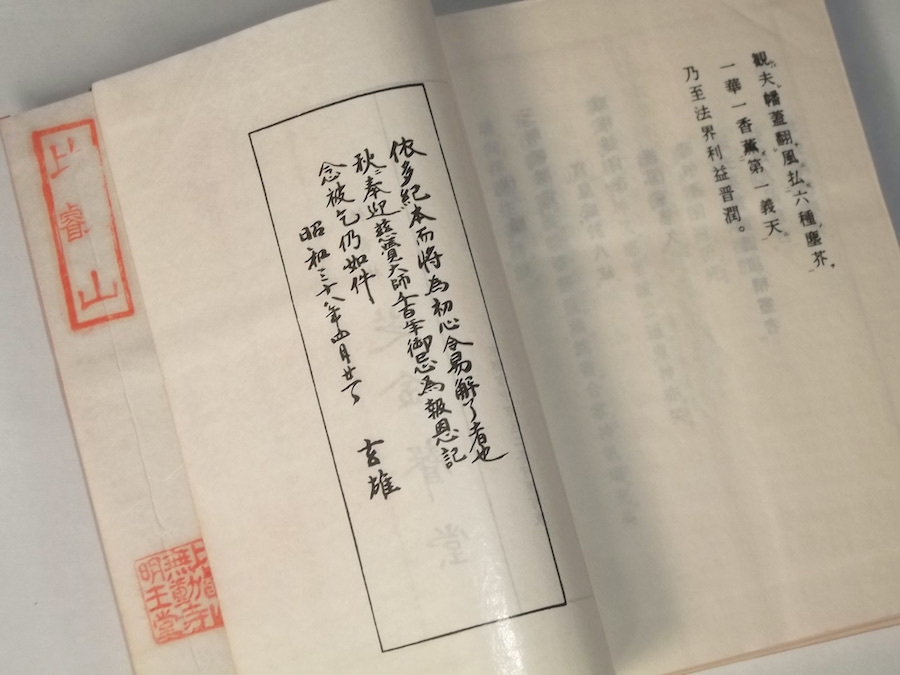 観夫幡蓋翻風払六種塵芥、
一華一香薫第一義天、
乃至法界利益普潤。
依多紀本而将為初心令易解了者也
秋奉迎慈覺大師千百年御忌為報恩記
念被乞仍如件
昭和三十八年四月廿
玄雄
比睿山
無動寺
明王堂